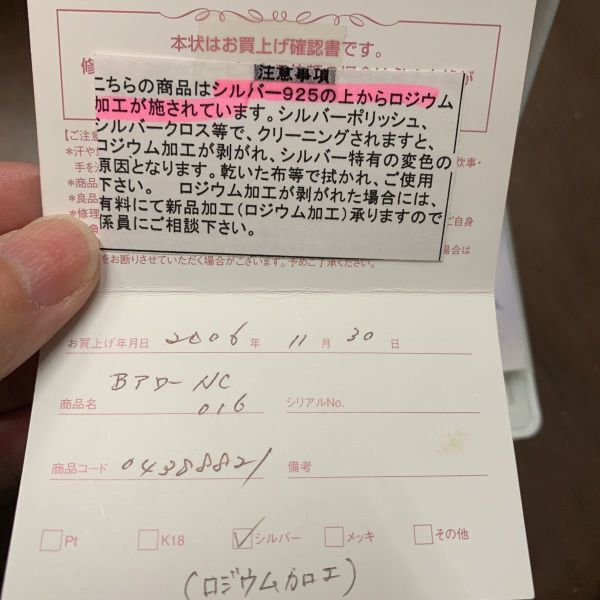 本状はお買上げ確認書です。
修
注意事項
こちらの商品はシルバー925の上からロジウム
加工が施されています。シルバーポリッシュ、
シルバークロス等で、クリーニングされますと、
ロジウム加工が剥がれ、シルバー特有の変色の
原因となります。乾いた布等で拭かれ、ご使用
下さい。 ロジウム加工が剥がれた場合には、
有料にて新品加工(ロジウム加工)承りますので
係員にご相談下さい。
【ご注意
*汗や
炊事・
手を
*商品
*良品
*修理
ご自身
場合は
をお断りさせていただく場合がございます。予めご了承ください。
お買上げ年月日 2006 年 11 月 30 日
商品名 BアローNC
016
シリアルNo.
商品コード 04388821
備考
Pt K18 シルバー メッキ その他
(ロジウム加工)